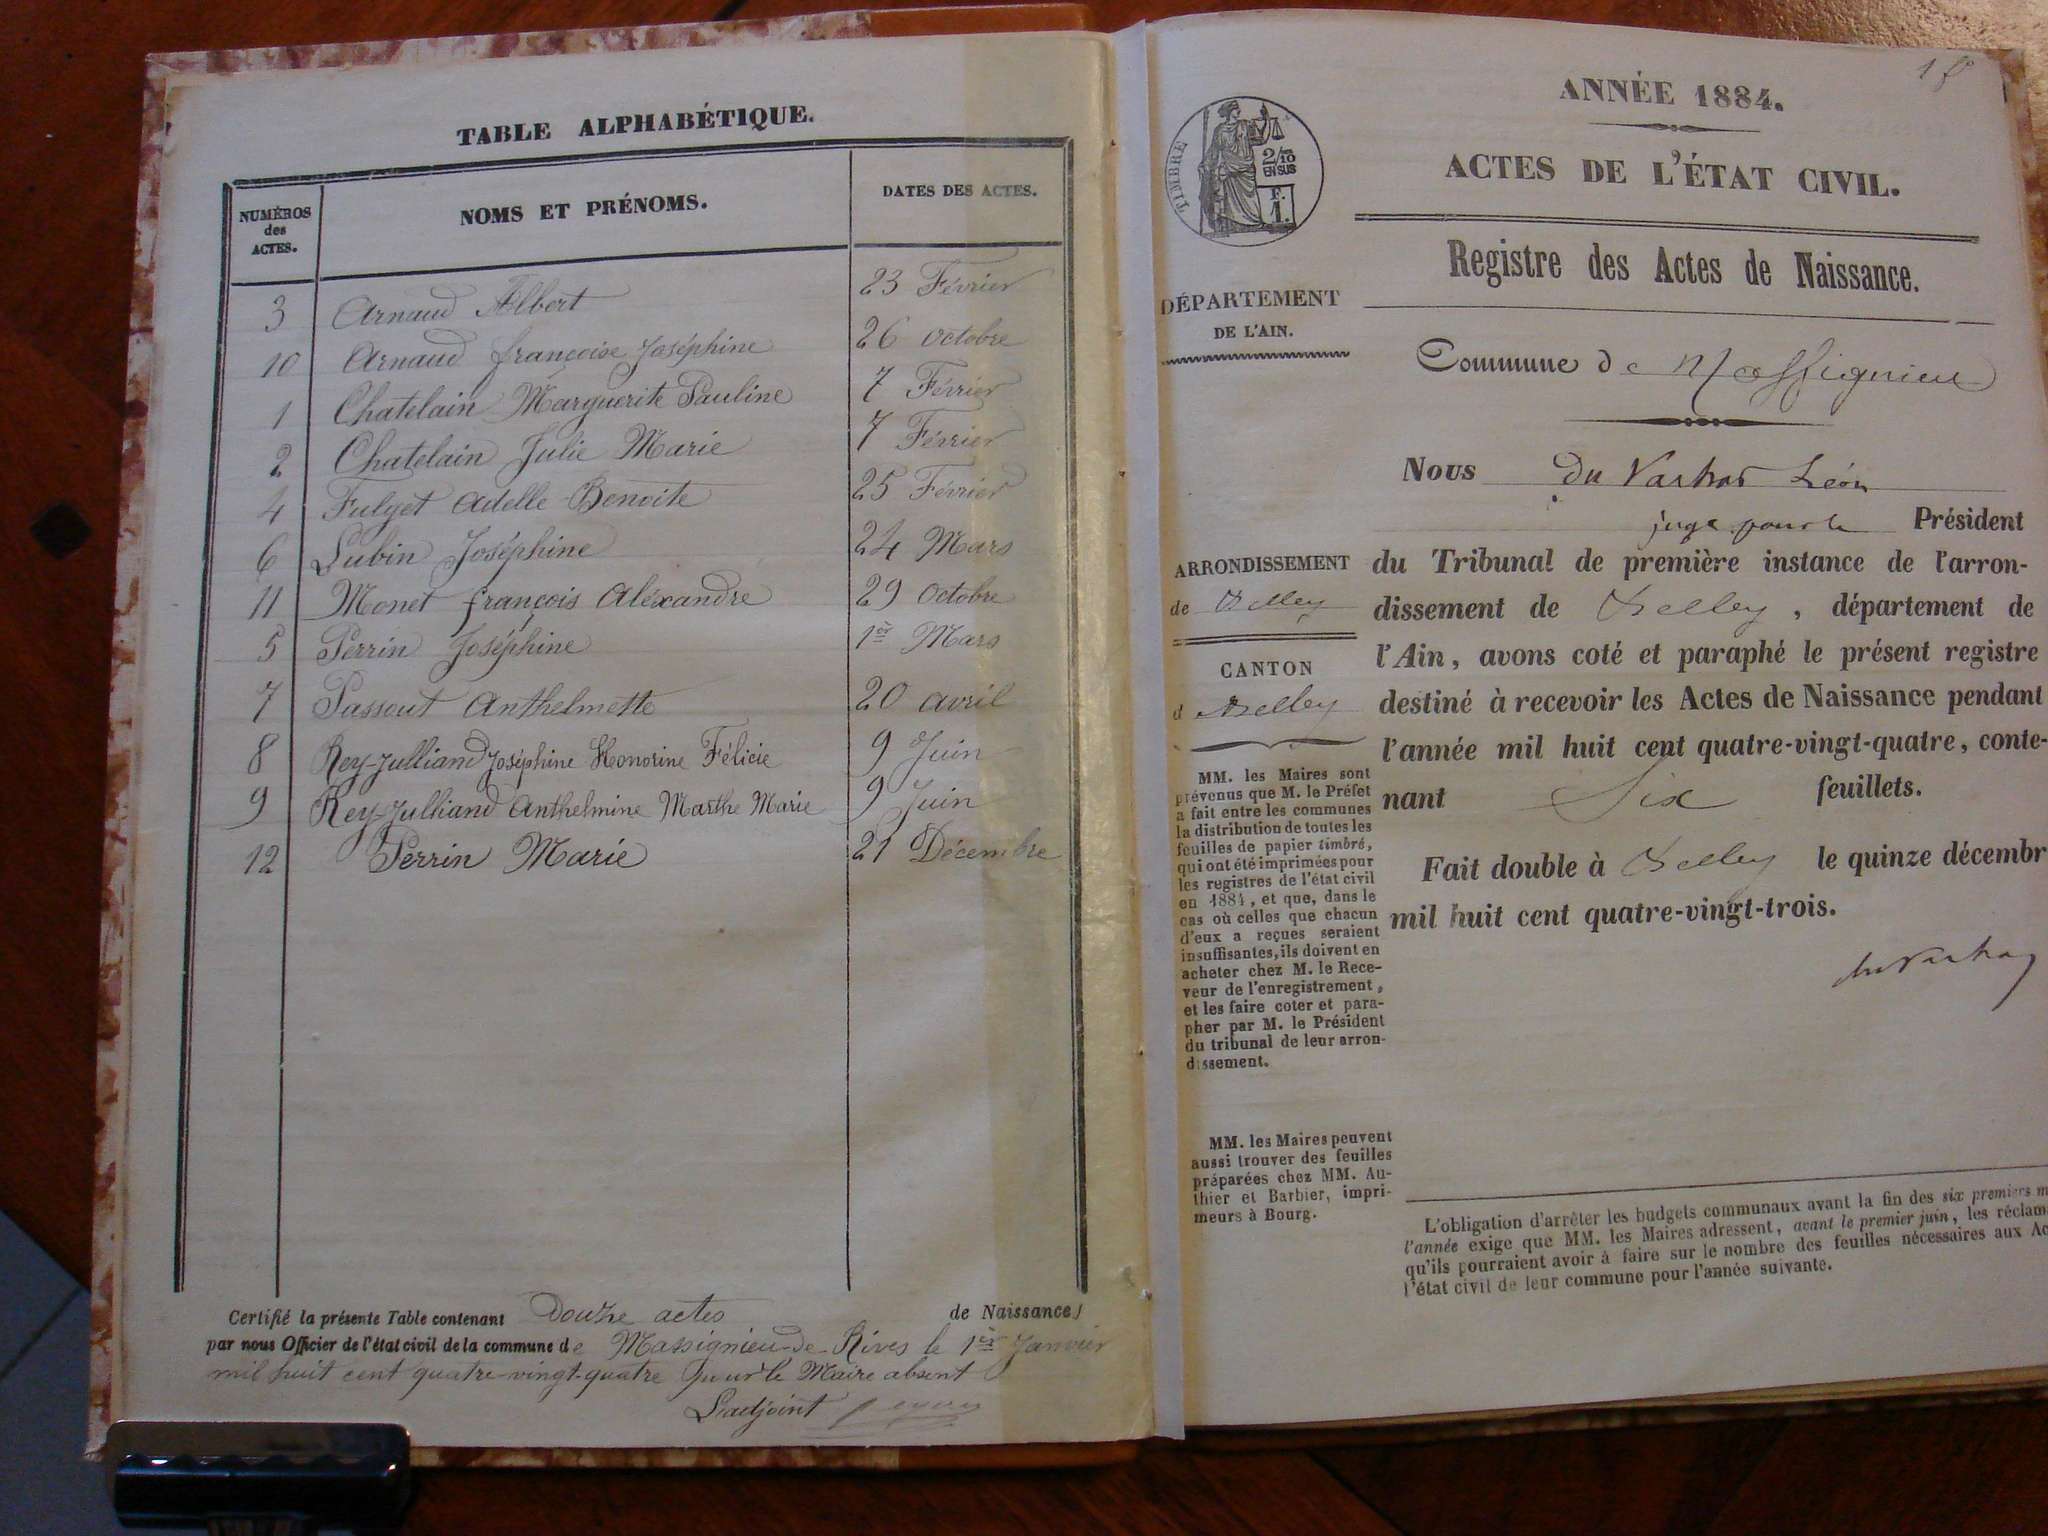 TABLE ALPHABÉTIQUE.
NUMÉROS des ACTES.
NOMS ET PRÉNOMS.
DATES DES ACTES.
3 Arnaud Albert 23 Février
10 Arnaud françoise Joséphine 26 octobre
1 Chatelain Marguerite Pauline 7 Février
2 Chatelain Julie Marie 7 Février
4 Fulyet Adelle Benoite 25 Février
6 Lubin Joséphine 24 Mars
11 Monet françois Aléxandre 29 octobre
5 Perrin Joséphine 1er Mars
7 Passout Anthelmette 20 avril
8 Rey-Julliand Joséphine Honorine Félicie 9 Juin
9 Rey-Julliand Anthelmine Marthe Marie 9 Juin
12 Perrin Marie 21 Décembre
Certifié la présente Table contenant Douze actes de Naissances
par nous Officier de l'état civil de la commune de Massignieu-de-Rives le 1er Janvier
mil huit cent quatre-vingt-quatre Pour le Maire absent
L'adjoint
1 f°
ANNÉE 1884.
ACTES DE L'ÉTAT CIVIL.
TIMBRE
2/10 EN SUS
F. 1.
Registre des Actes de Naissance.
DÉPARTEMENT
DE L'AIN.
Commune de Massignieu
Nous Léon
juge pour le Président
du Tribunal de première instance de l'arron-
dissement de Belley, département de
l'Ain, avons coté et paraphé le présent registre
destiné à recevoir les Actes de Naissance pendant
l'année mil huit cent quatre-vingt-quatre, conte-
nant Six feuillets.
Fait double à Belley le quinze décembr
mil huit cent quatre-vingt-trois.
ARRONDISSEMENT
de Belley
CANTON
d Belley
MM. les Maires sont
prévenus que M. le Préfet
a fait entre les communes
la distribution de toutes les
feuilles de papier timbré,
qui ont été imprimées pour
les registres de l'état civil
en 1884, et que, dans le
cas où celles que chacun
d'eux a reçues seraient
insuffisantes, ils doivent en
acheter chez M. le Rece-
veur de l'enregistrement,
et les faire coter et para-
pher par M. le Président
du tribunal de leur arron-
dissement.
MM. les Maires peuvent
aussi trouver des feuilles
préparées chez MM. Au-
thier et Barbier, impri-
meurs à Bourg.
L'obligation d'arrêter les budgets communaux avant la fin des six premiers m
l'année exige que MM. les Maires adressent, avant le premier juin, les réclam
qu'ils pourraient avoir à faire sur le nombre des feuilles nécessaires aux Ac
l'état civil de leur commune pour l'année suivante.